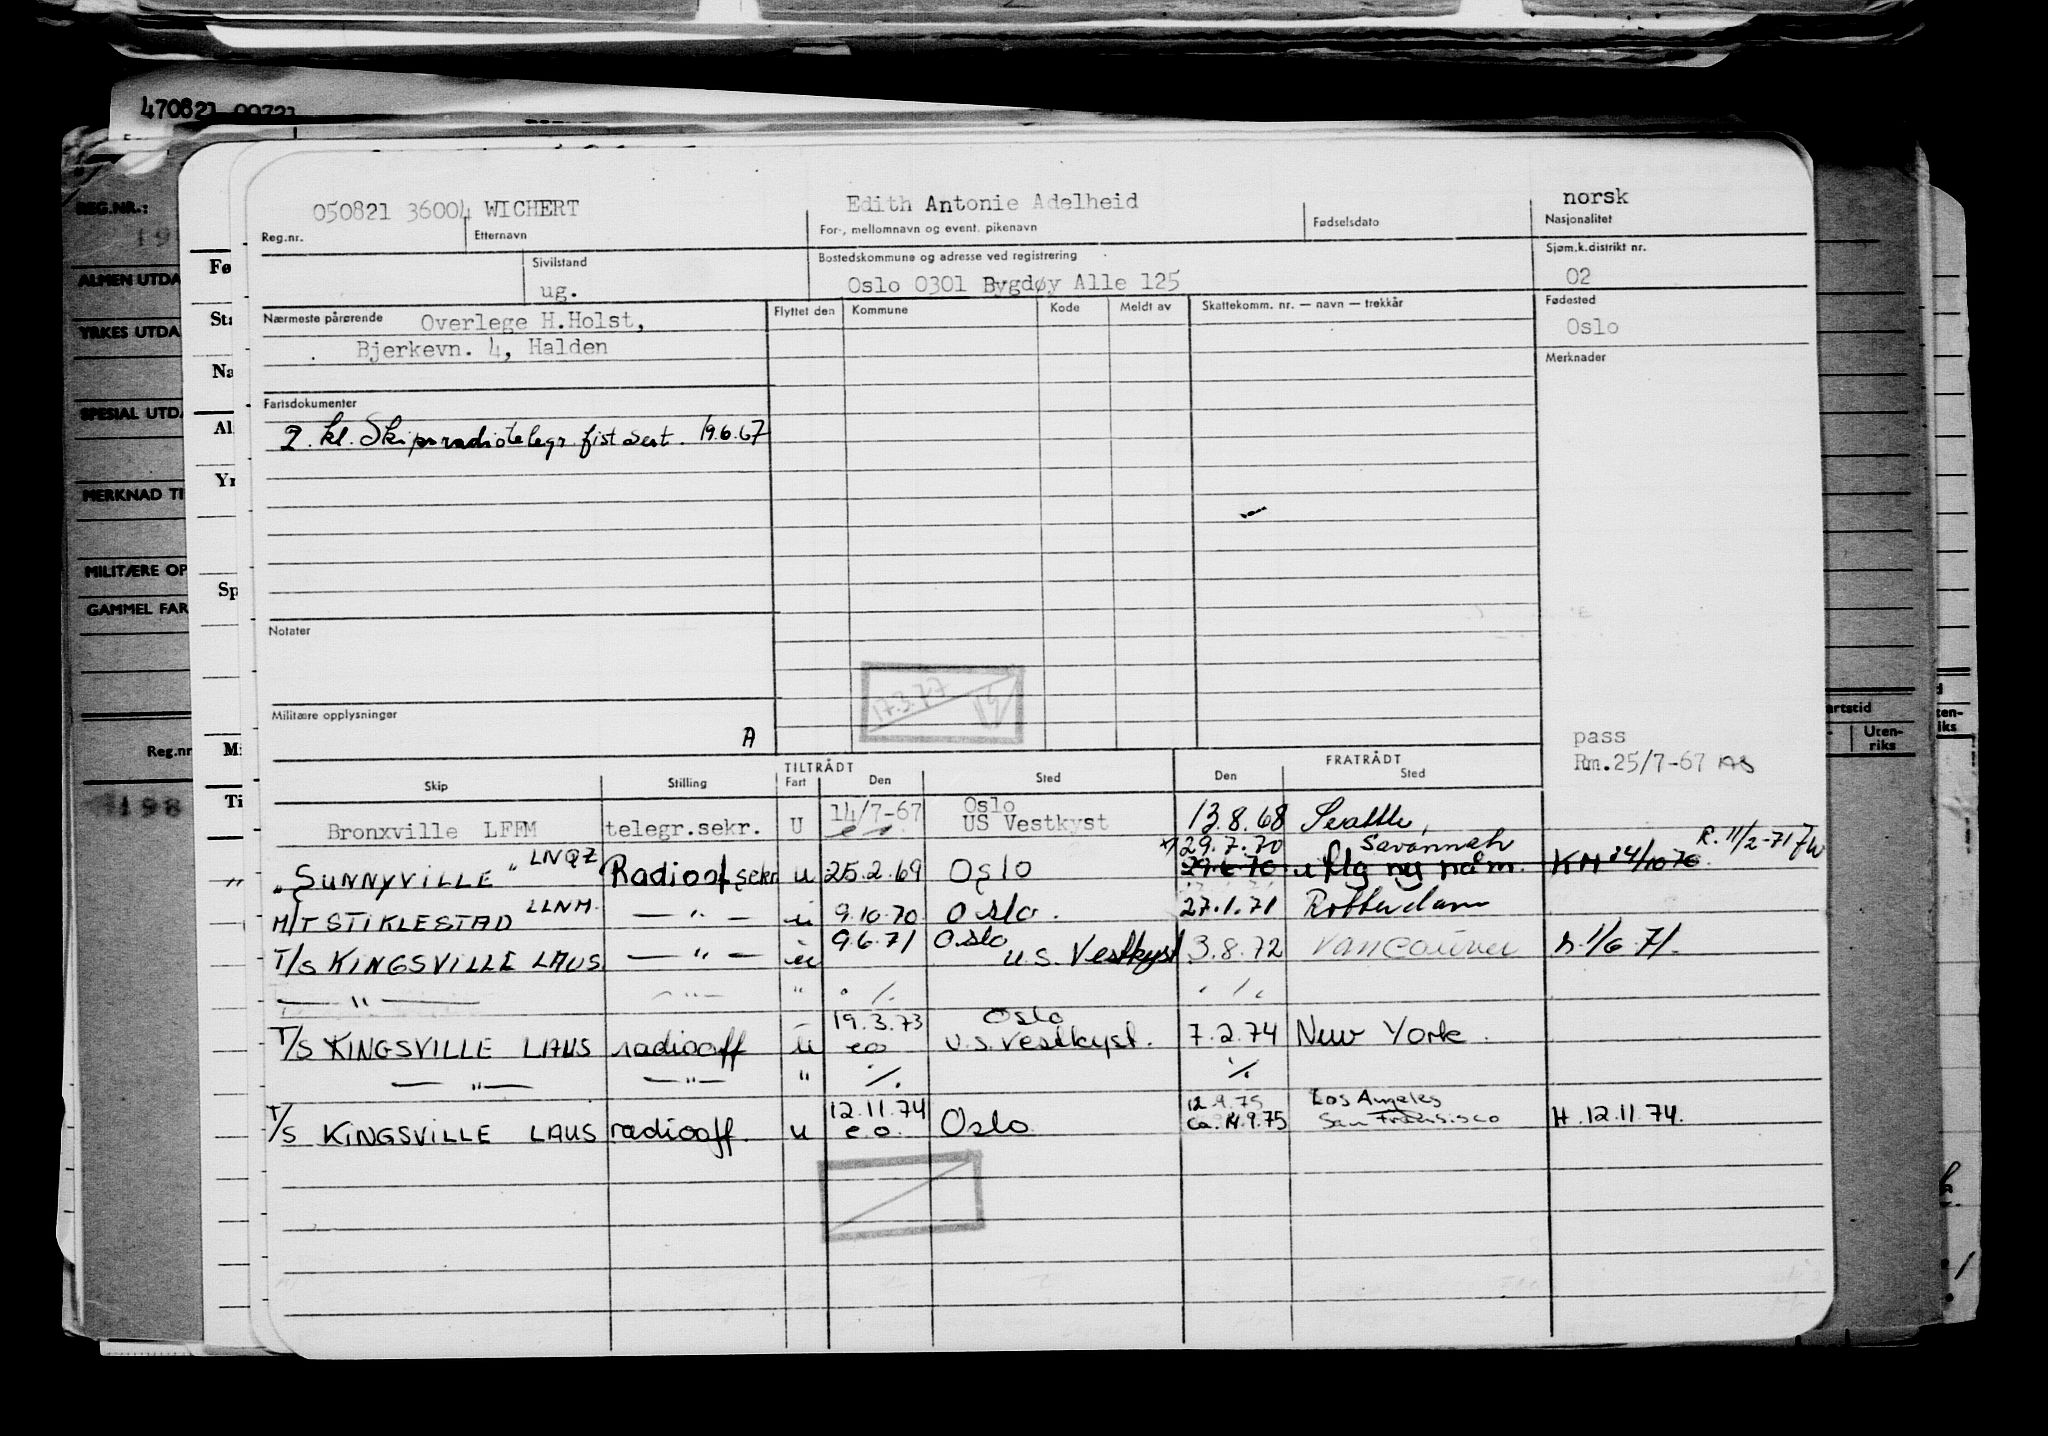 470821
REG.NR.:
ALMEN UTDA
YRKES UTDA
SPESIAL UTDA
MERKNAD TI
MILITÆRE OP
GAMMEL FAR
Reg.nr
198
Fø
Sta
Na
Al
Yr
Sp
M
Ti
050821 36004 WICHERT Edith Antonie Adelheid norsk
Reg.nr. Etternavn For-, mellomnavn og event. pikenavn Fødselsdato Nasjonalitet
Sivilstand Bostedskommune og adresse ved registrering Sjøm.k.distrikt nr.
ug. Oslo 0301 Bygdøy Alle 125 02
Nærmeste pårørende Overlege H.Holst, Flyttet den Kommune Kode Meldt av Skattekomm. nr. — navn — trekkår Fødested
Oslo
Bjerkevn. 4, Halden Merknader
Fartsdokumenter
2. kl. Skipsradiotelegr. fist sert. 19.6.67
Notater
17.3.77
Militære opplysninger
A
pass
Rm.25/7-67
TILTRÅDT FRATRÅDT
Skip Stilling Fart Den Sted Den Sted
Bronxville LFFM telegr.sekr. U 14/7-67 Oslo US Vestkyst 13.8.68 Seattle,
x) 29.7.70 Savannah R. 11/2-71
„ "SUNNYVILLE" LNQZ Radioof sekr u 25.2.69 Oslo 29.6.70 u flg ny nam. KH 24/10 70
M/T STIKLESTAD LLNH — " — u 9.10.70 Oslo. 27.1.71 Rotterdam
T/S KINGSVILLE LAUS — " — u 9.6.71 Oslo U.S. Vestkyst 3.8.72 Vancouver h. 1/6.71.
— " — — " — " ./. ./.
T/S KINGSVILLE LAUS radiooff u 19.3.73 eo Oslo U.S. Vestkyst. 7.2.74 New York.
— " — — " — " ./. ./.
12.9.75 Los Angeles
T/S KINGSVILLE LAUS radiooff. u 12.11.74 e.o. Oslo ca. 14.9.75 San Fransisco H. 12.11.74.
artstid
Uten-
riks